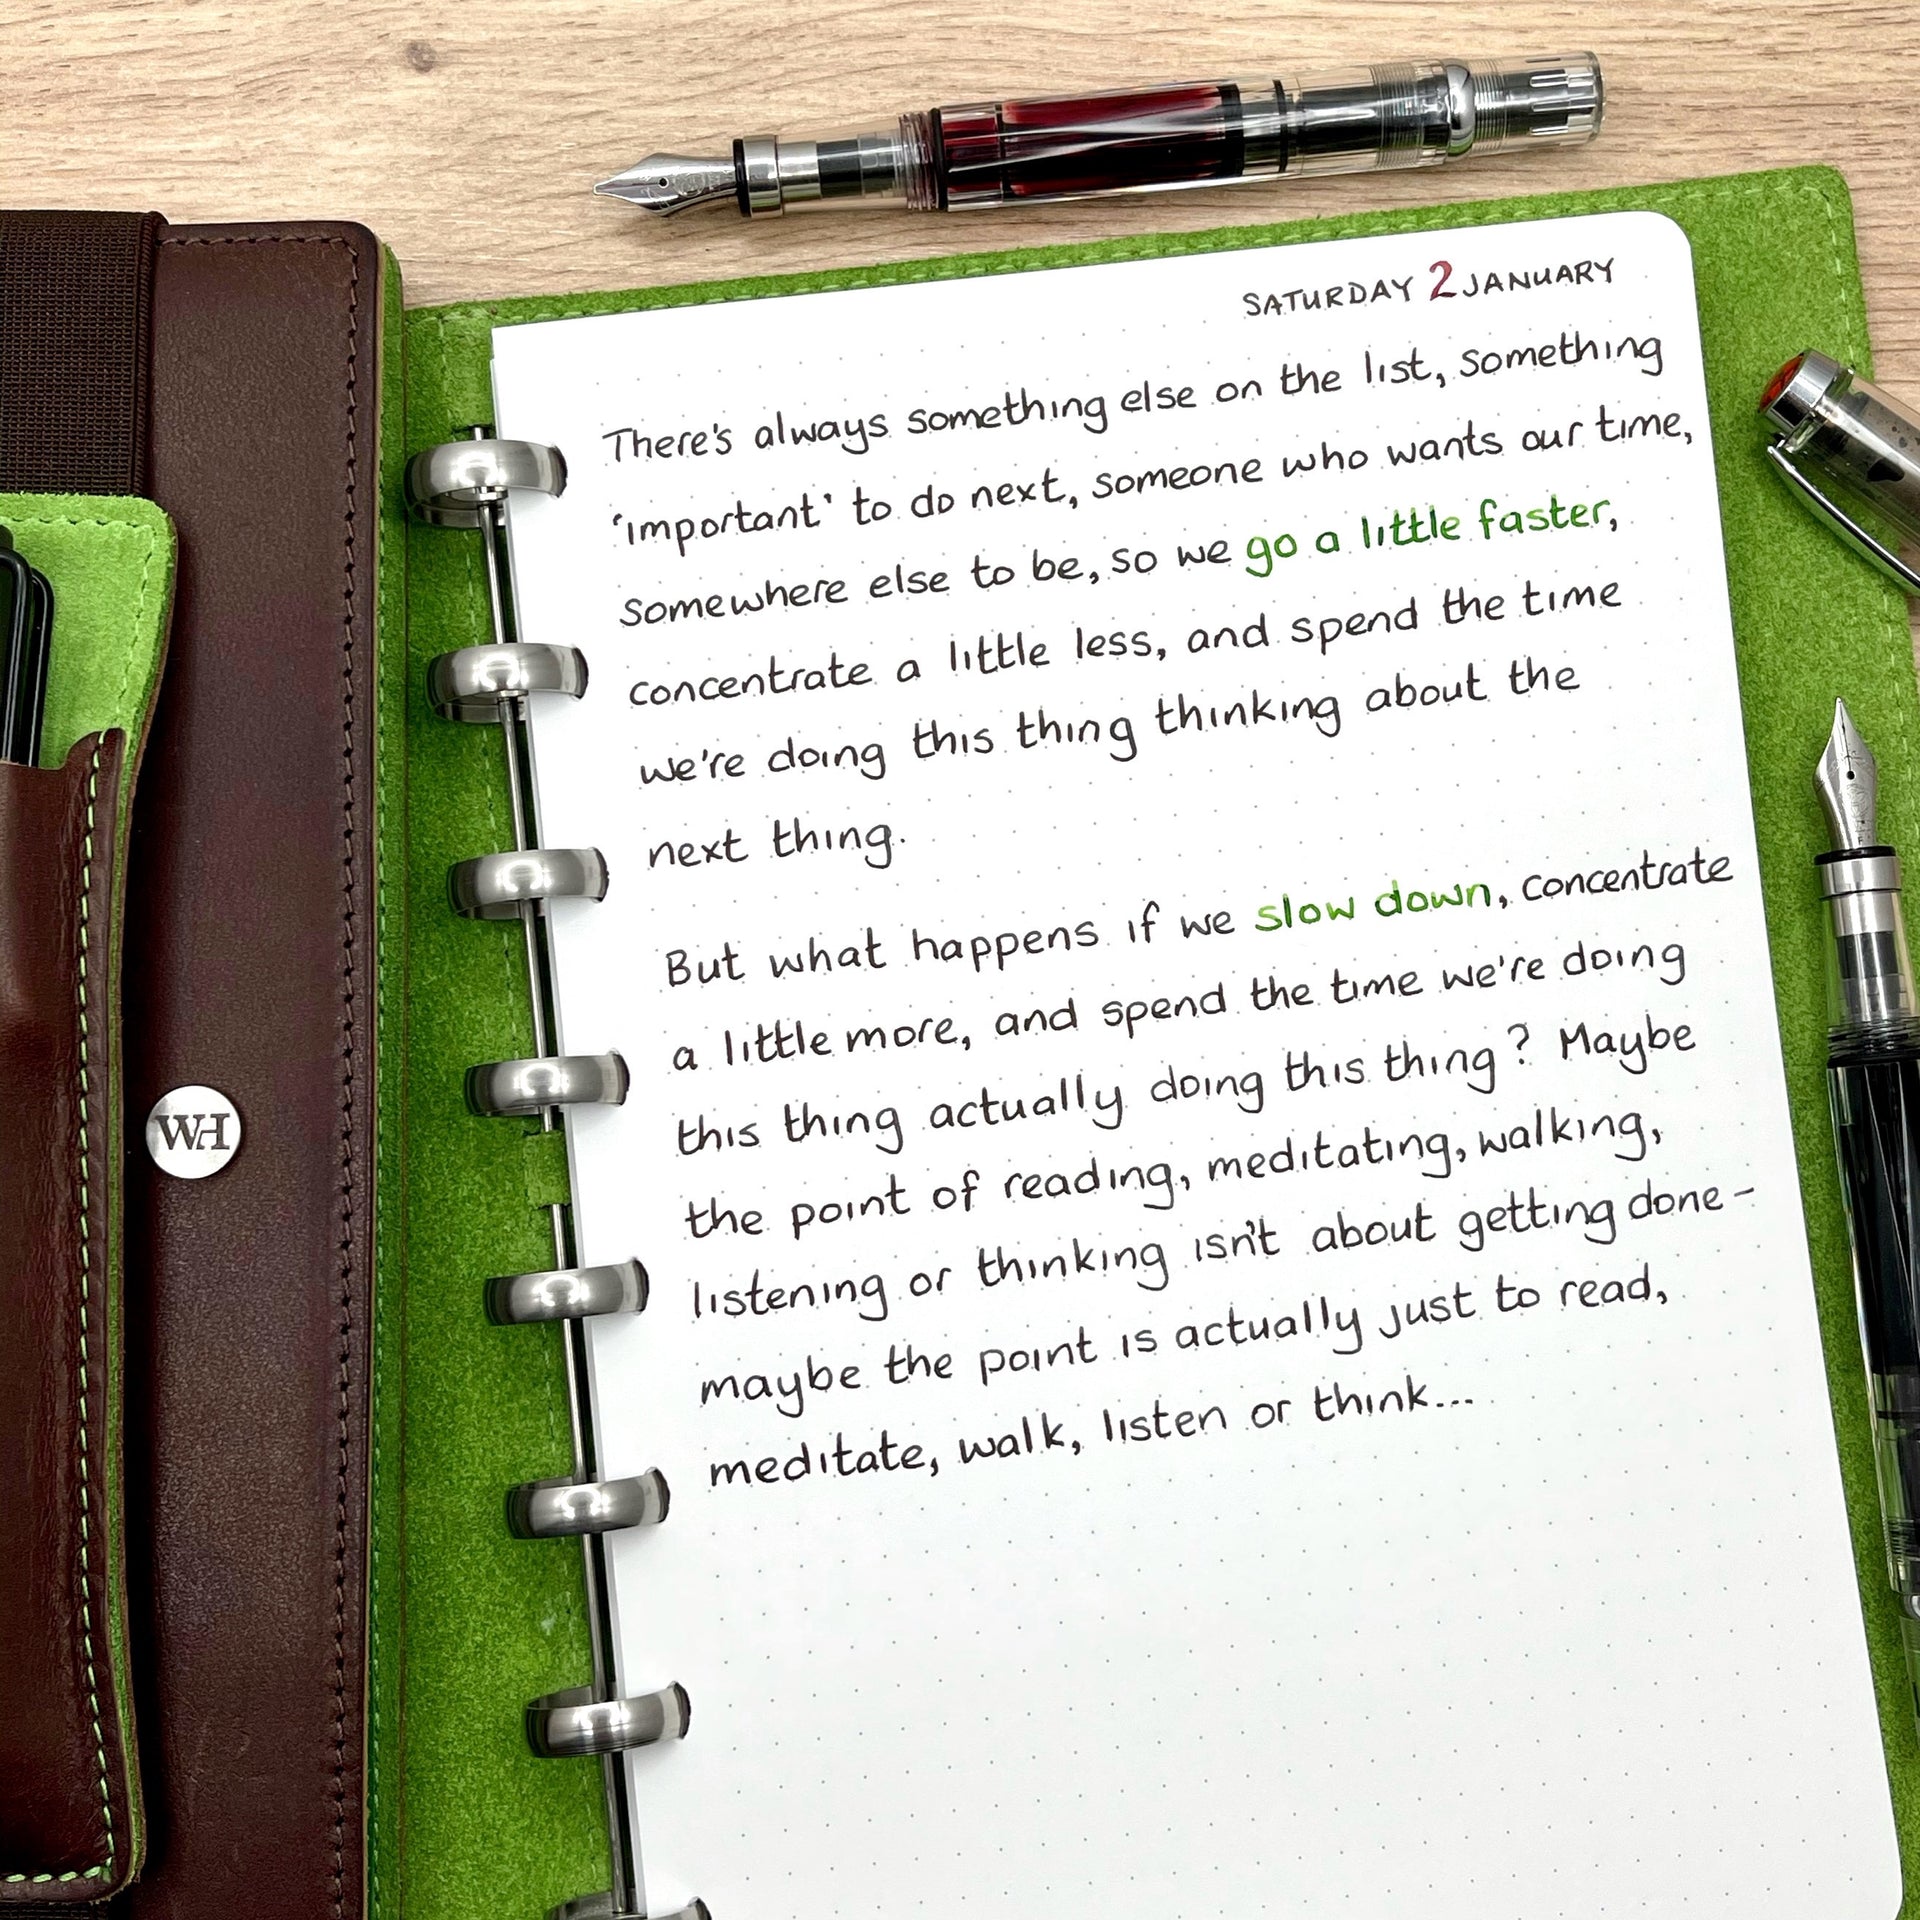 SATURDAY 2 JANUARY
There's always something else on the list, something
'important' to do next, someone who wants our time,
somewhere else to be, so we go a little faster,
concentrate a little less, and spend the time
we're doing this thing thinking about the
next thing.
But what happens if we slow down, concentrate
a little more, and spend the time we're doing
this thing actually doing this thing? Maybe
the point of reading, meditating, walking,
listening or thinking isn't about getting done -
maybe the point is actually just to read,
meditate, walk, listen or think...
WH